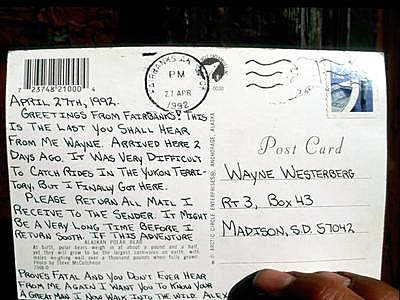 7 23748 21000 4
FAIRBANKS AK
PM
27 APR
1992
April 27th, 1992.
Greetings from Fairbanks! This
is the last you shall hear
from me Wayne. Arrived here 2
days ago. It was very difficult
to catch rides in the Yukon Terri-
tory. But I finally got here.
Please return all mail I
receive to the sender. It might
be a very long time before I
return South. If this adventure
ALASKAN POLAR BEAR
At birth, polar bears weigh in at about a pound and a half,
yet they will grow to be the largest carnivores on earth, with
males weighing well over a thousand pounds when fully grown.
Photo by Steve McCutcheon
proves fatal and you don't ever hear
from me again I want you to know your
a great man I now walk into the wild. Alex
© ARCTIC CIRCLE ENTERPRISES® ANCHORAGE, ALASKA
Post Card
Wayne Westerberg
Rt 3, Box 43
Madison, S.D. 57042